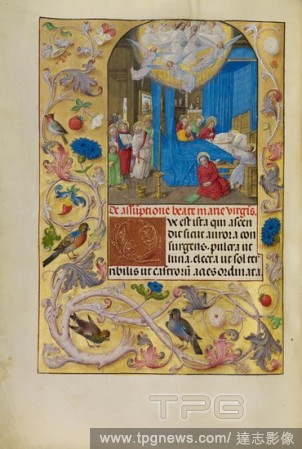 De assumptione beate marie virgis.
Que est ista qui ascen
dit sicut aurora con
surgens. pulcra ut
luna. electa ut sol ter
ribilis ut castrorum acies ordinata.
TPG
www.tpgnews.com/達志影像